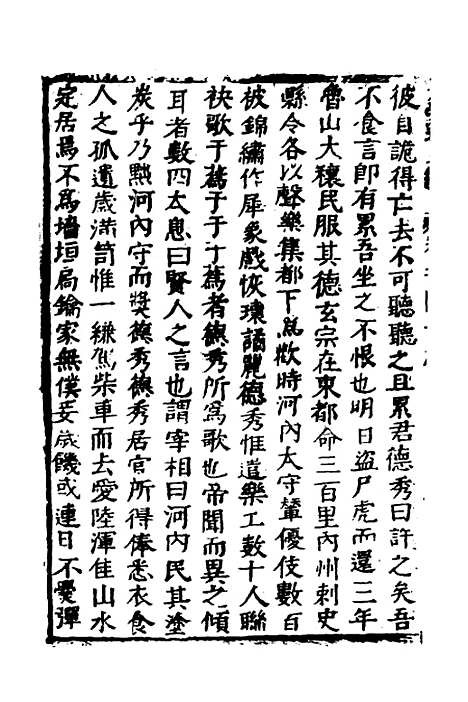 彼自詭得亡去不可聽聽之且累君德秀曰許之矣吾
不食言即有累吾坐之不恨也明日盗尸虎而還三年
魯山大穰民服其德玄宗在東都命三百里內州刺史
縣令各以聲樂集都下爲歡時河內太守輦優伎數百
被錦繡作犀象戲恢瓌譎麗德秀惟遣樂工數十人聯
袂歌于蒍于于于蒍者德秀所爲歌也帝聞而異之傾
耳者數四太息曰賢人之言也謂宰相曰河內民其塗
炭乎乃黜河內守而獎德秀德秀居官所得俸悉衣食
人之孤遺歲滿笥惟一縑駕柴車而去愛陸渾佳山水
定居焉不爲墻垣扃鑰家無僕妾歲饑或連日不㸑彈